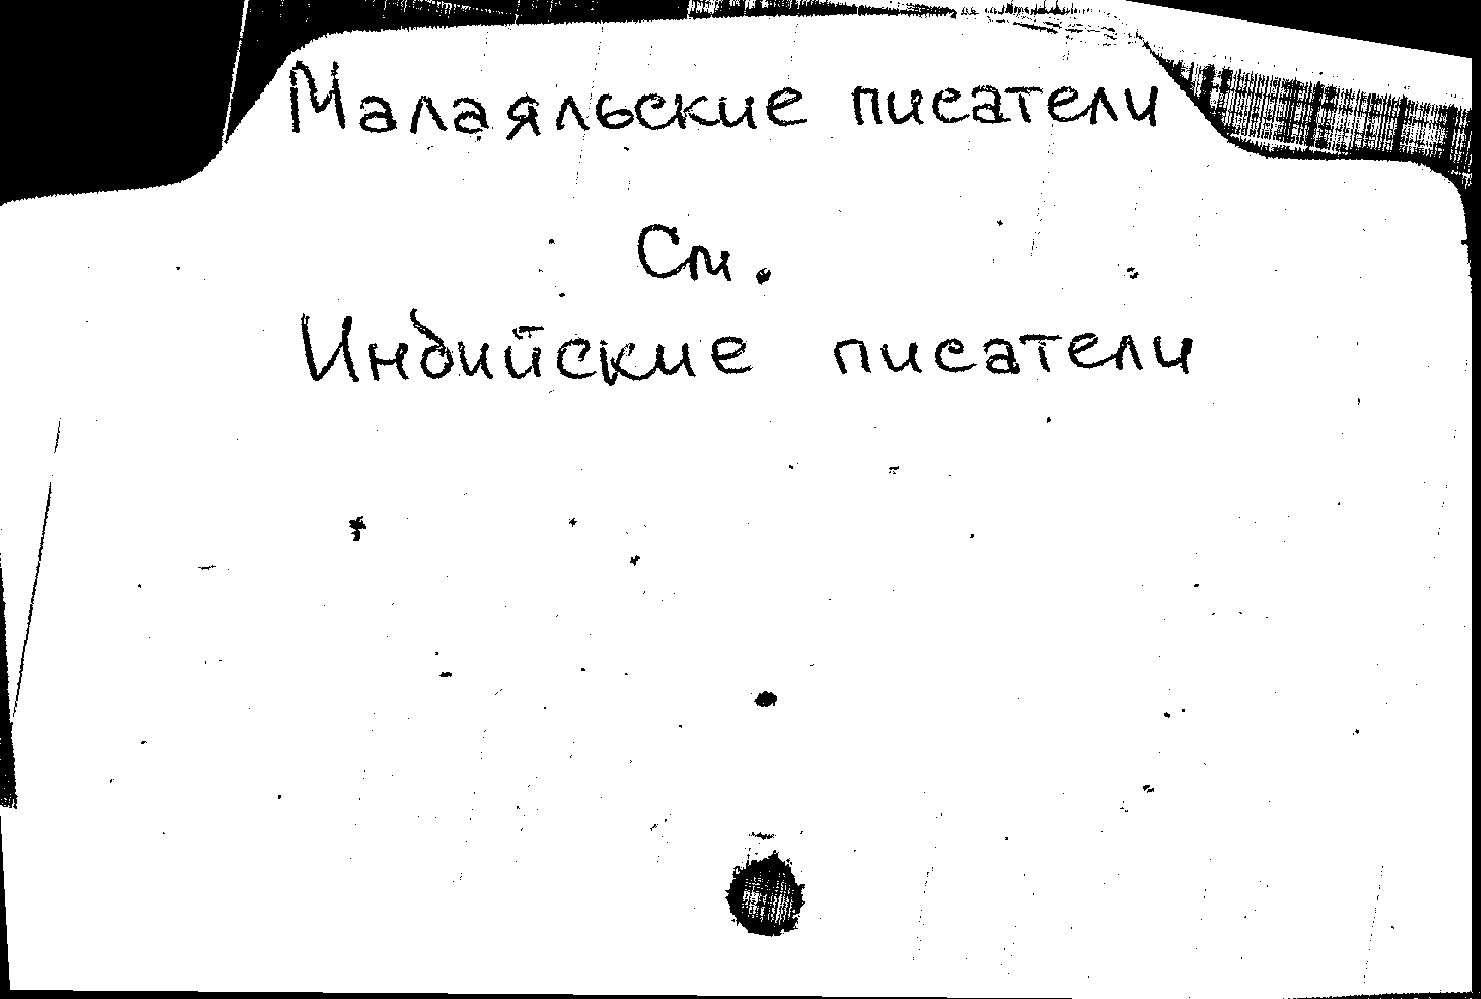 Малаяльские писатели
См.
Индийские писатели